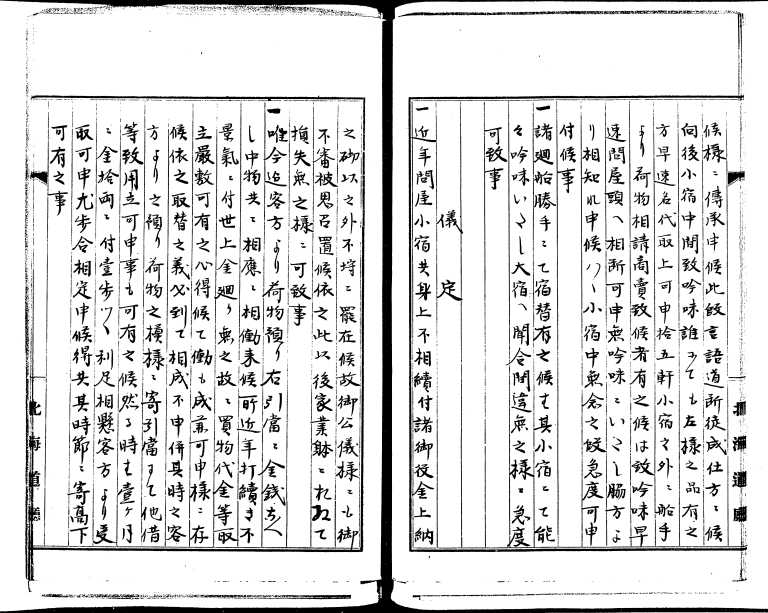 候様ニ傳承申候此故言語道断徒成仕方ニ候
向後小宿中間致吟味誰ニ而も左様之品有之
方早速名代取上可申拾五軒小宿之外ニ船手
より荷物相請商賣致候者有之候は致吟味早
速問屋頭へ相断可申無吟味ニいたし脇方よ
り相知れ申候ハヽ小宿中無念之故急度可申
付候事
一諸廻船勝手ニて宿替有之候も其小宿ニて能
々吟味いたし大宿へ聞合間違無之様ニ急度
可致事
儀定
一近年問屋小宿共身上不相續付諸御役金上納
之砌以之外不埒ニ罷在候故御公儀様ニも御
不審被思召置候依之此以後家業躰ニれ扣て
損失無之様ニ可致事
一唯今迄客方より荷物預り右引當ニ金銭才へ
し中物共ニ相應ニ相働来候所近年打續き不
景氣ニ付世上金廻り無之故ニ買物代金等取
立嚴敷可有之心得候て働も成兼可申様ニ存
候依之取替之義必到て相成不申併其時之客
方より之預り荷物之模様ニ寄引當ニて他借
等致用立可申事も可有之候然る時も壹ヶ月
ニ金拾両ニ付壹歩ツヽ利足相懸客方より受
取可申尤歩合相定申候得共其時節ニ寄高下
可有之事
北海道廳
北海道廳